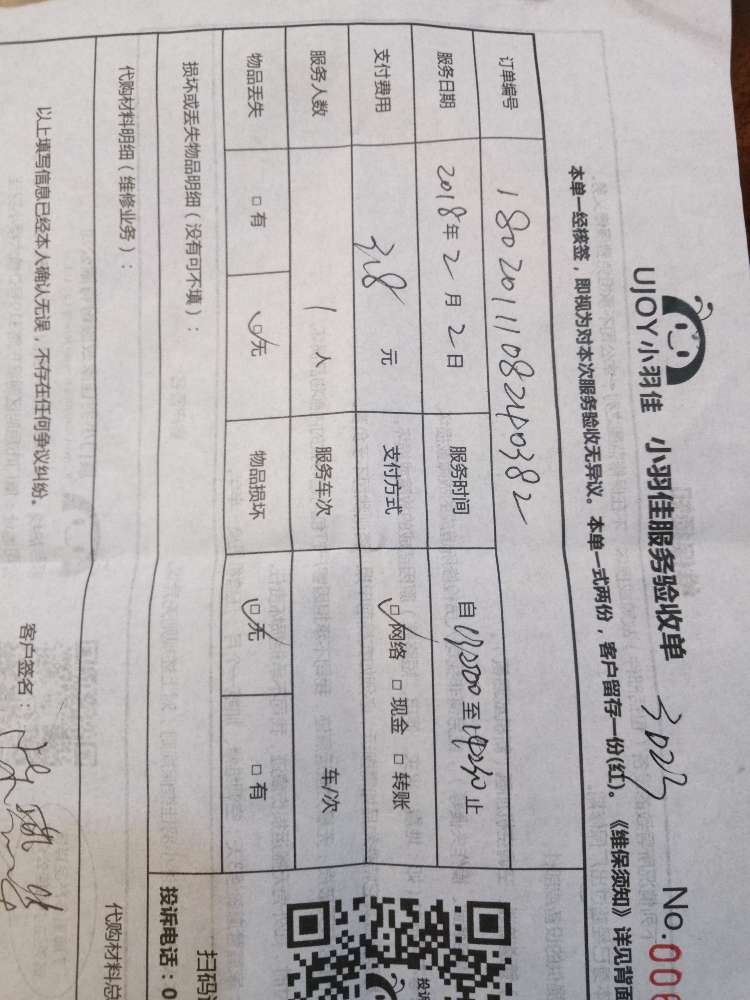 UJOY小羽佳 小羽佳服务验收单 3023 No.006
本单一经核签，即视为对本次服务验收无异议。本单一式两份，客户留存一份(红)。《维保须知》详见背面
订单编号 18020111082140382
服务日期 2018年2月2日 服务时间 自 至 止
支付费用 318元 支付方式 □网络 □现金 □转账
服务人数 1人 服务车次 车/次
物品丢失 □有 □无 物品损坏 □无 □有
损坏或丢失物品明细（没有可不填）：
代购材料明细（维修业务）： 代购材料总
以上填写信息已经本人确认无误，不存在任何争议纠纷。
客户签名：
投诉
扫码
投诉电话：0